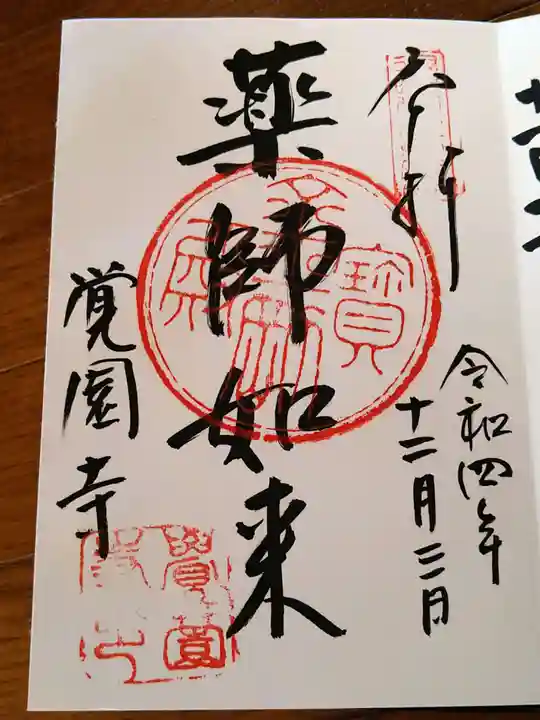 奉拝
令和四年
十二月三日
薬師如来
寳
覚園寺
覺園